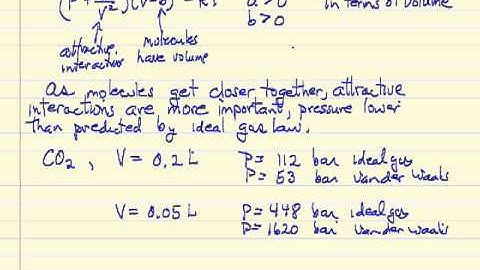 (P + a/V²)(V-b) = RT a > 0 in terms of volume
b > 0
attractive interactions molecules have volume
as molecules get closer together, attractive
interactions are more important, pressure lower
than predicted by ideal gas law.
CO₂, V = 0.2 L P = 112 bar ideal gas
P = 53 bar van der Waals
V = 0.05 L P = 448 bar ideal gas
P = 1620 bar van der Waals